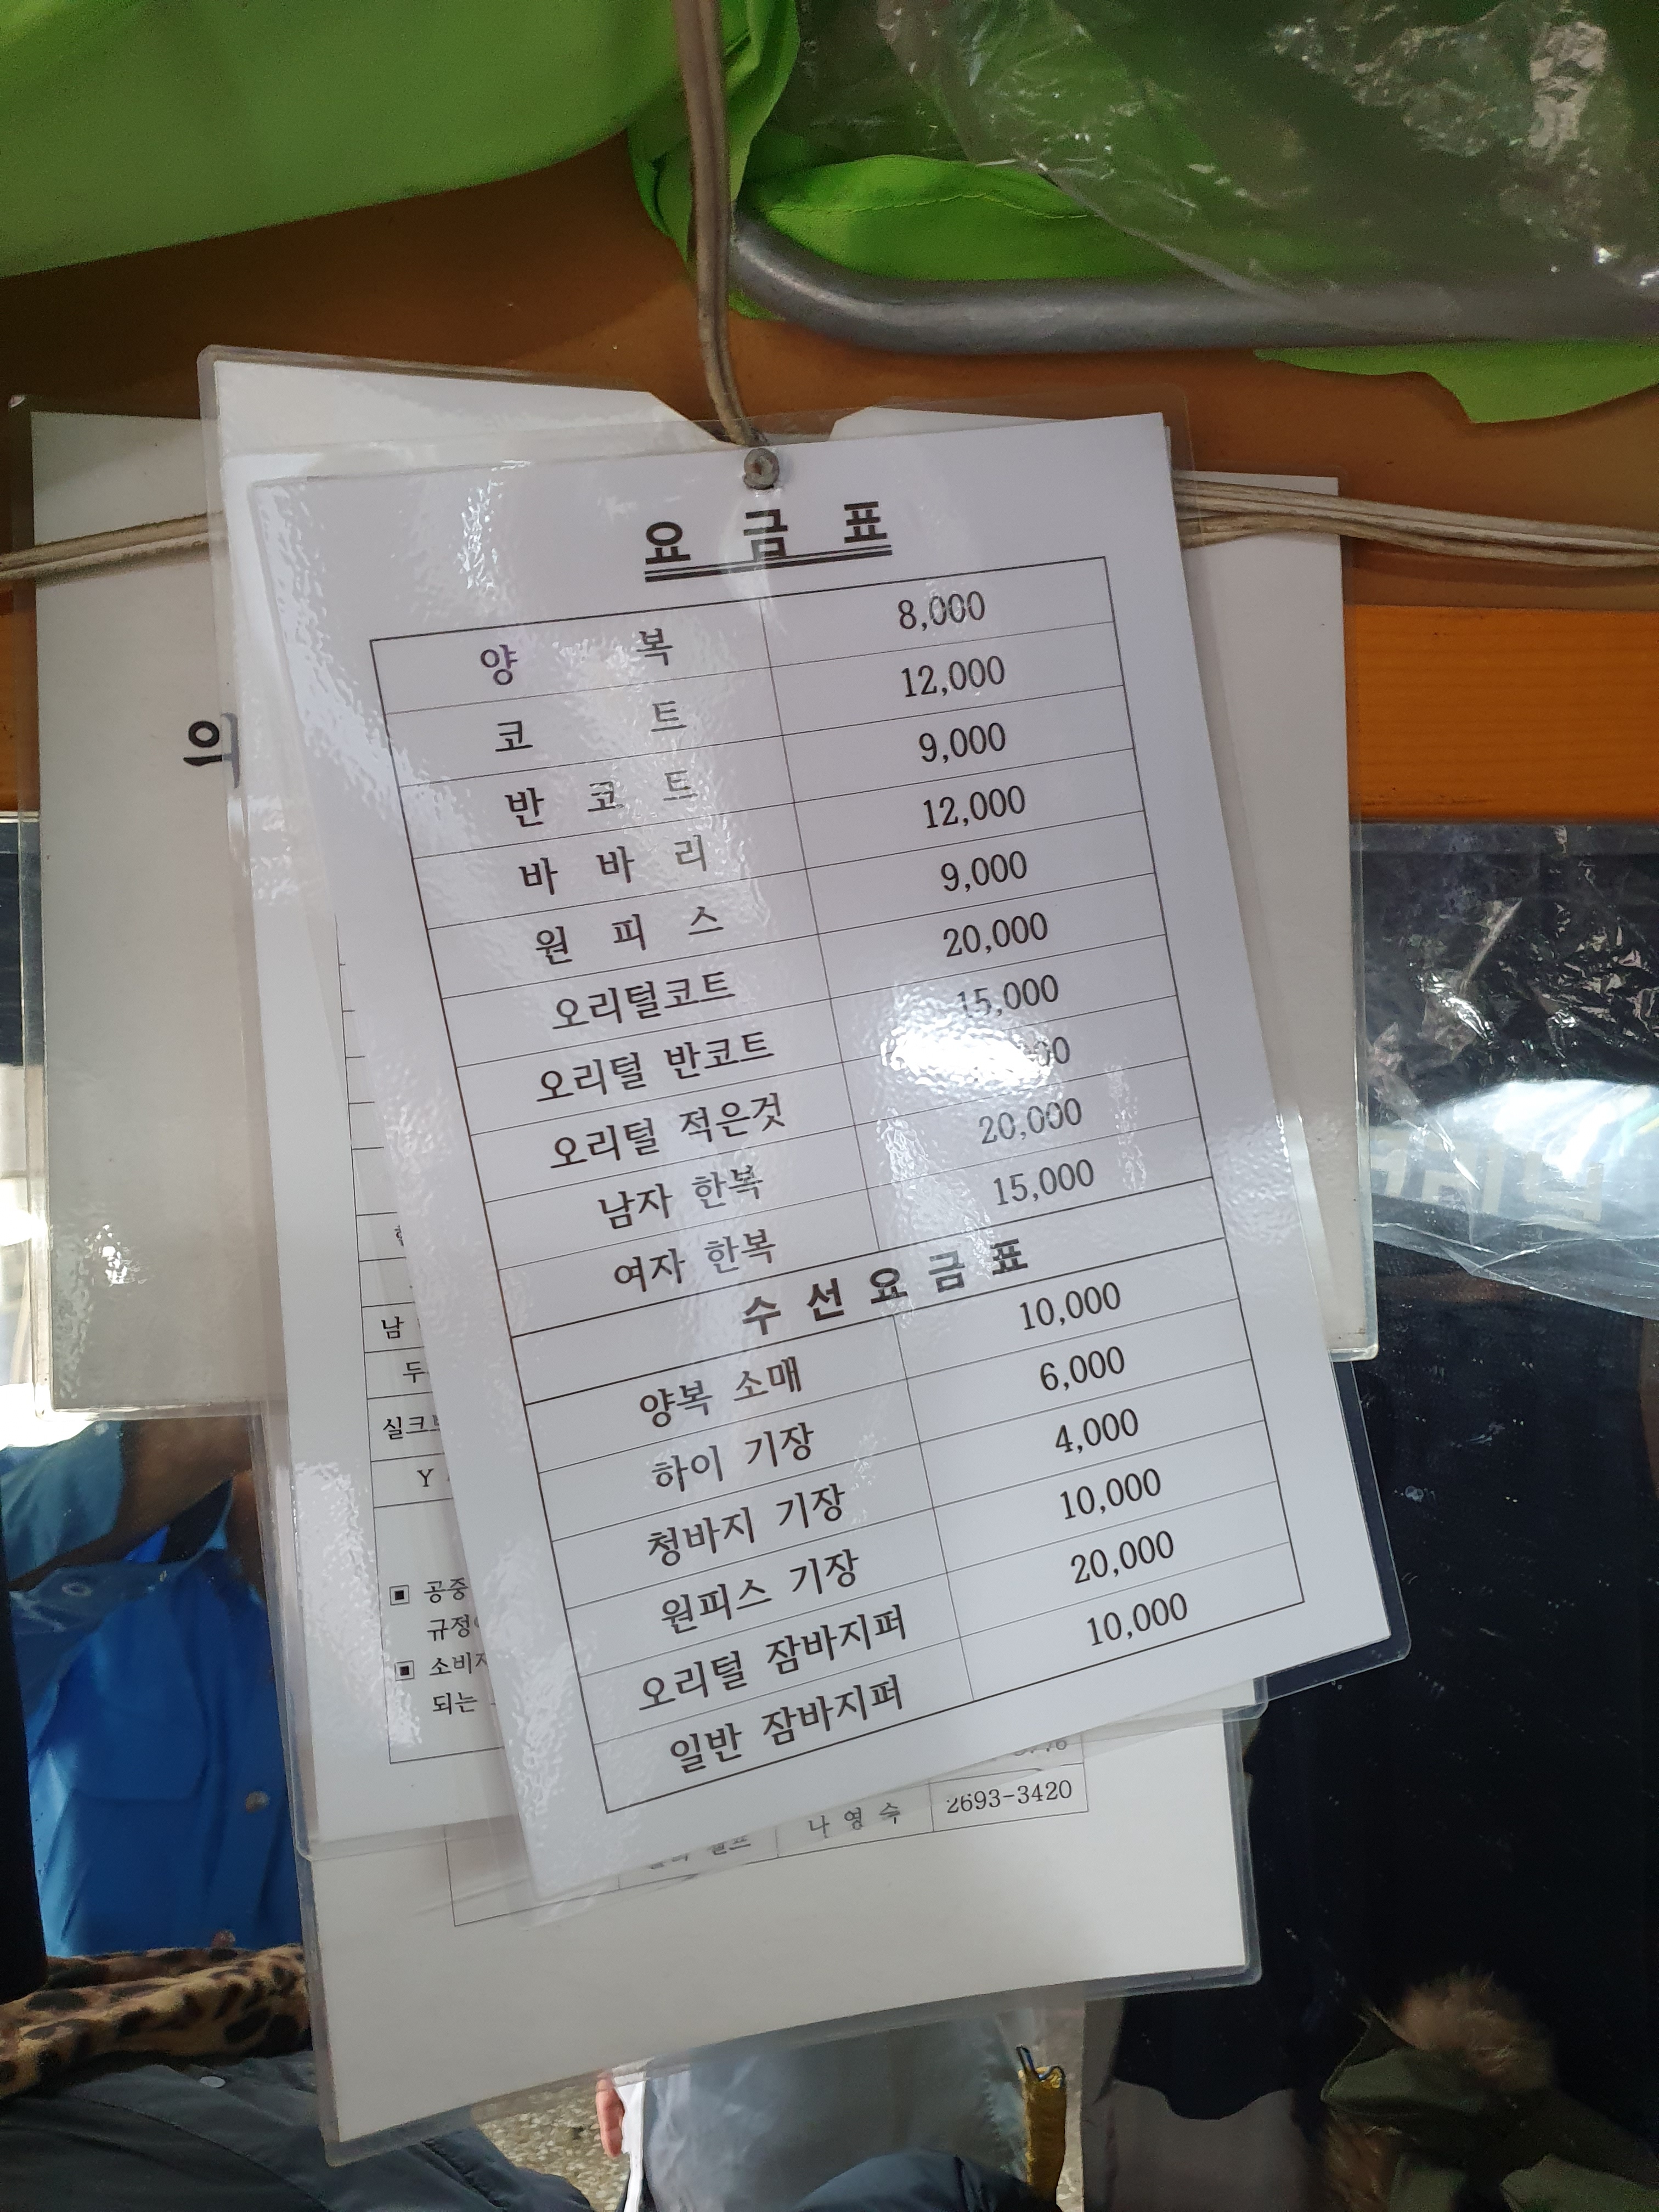 요 금 표
양 복 8,000
코 트 12,000
반 코 트 9,000
바 바 리 12,000
원 피 스 9,000
오리털코트 20,000
오리털 반코트 15,000
오리털 적은것
남자 한복 20,000
여자 한복 15,000
수 선 요 금 표
양복 소매 10,000
하이 기장 6,000
청바지 기장 4,000
원피스 기장 10,000
오리털 잠바지퍼 20,000
일반 잠바지퍼 10,000
의
남
두
실크
Y
▣ 공중
규정
▣ 소비자
되는
나 영 수 2693-3420